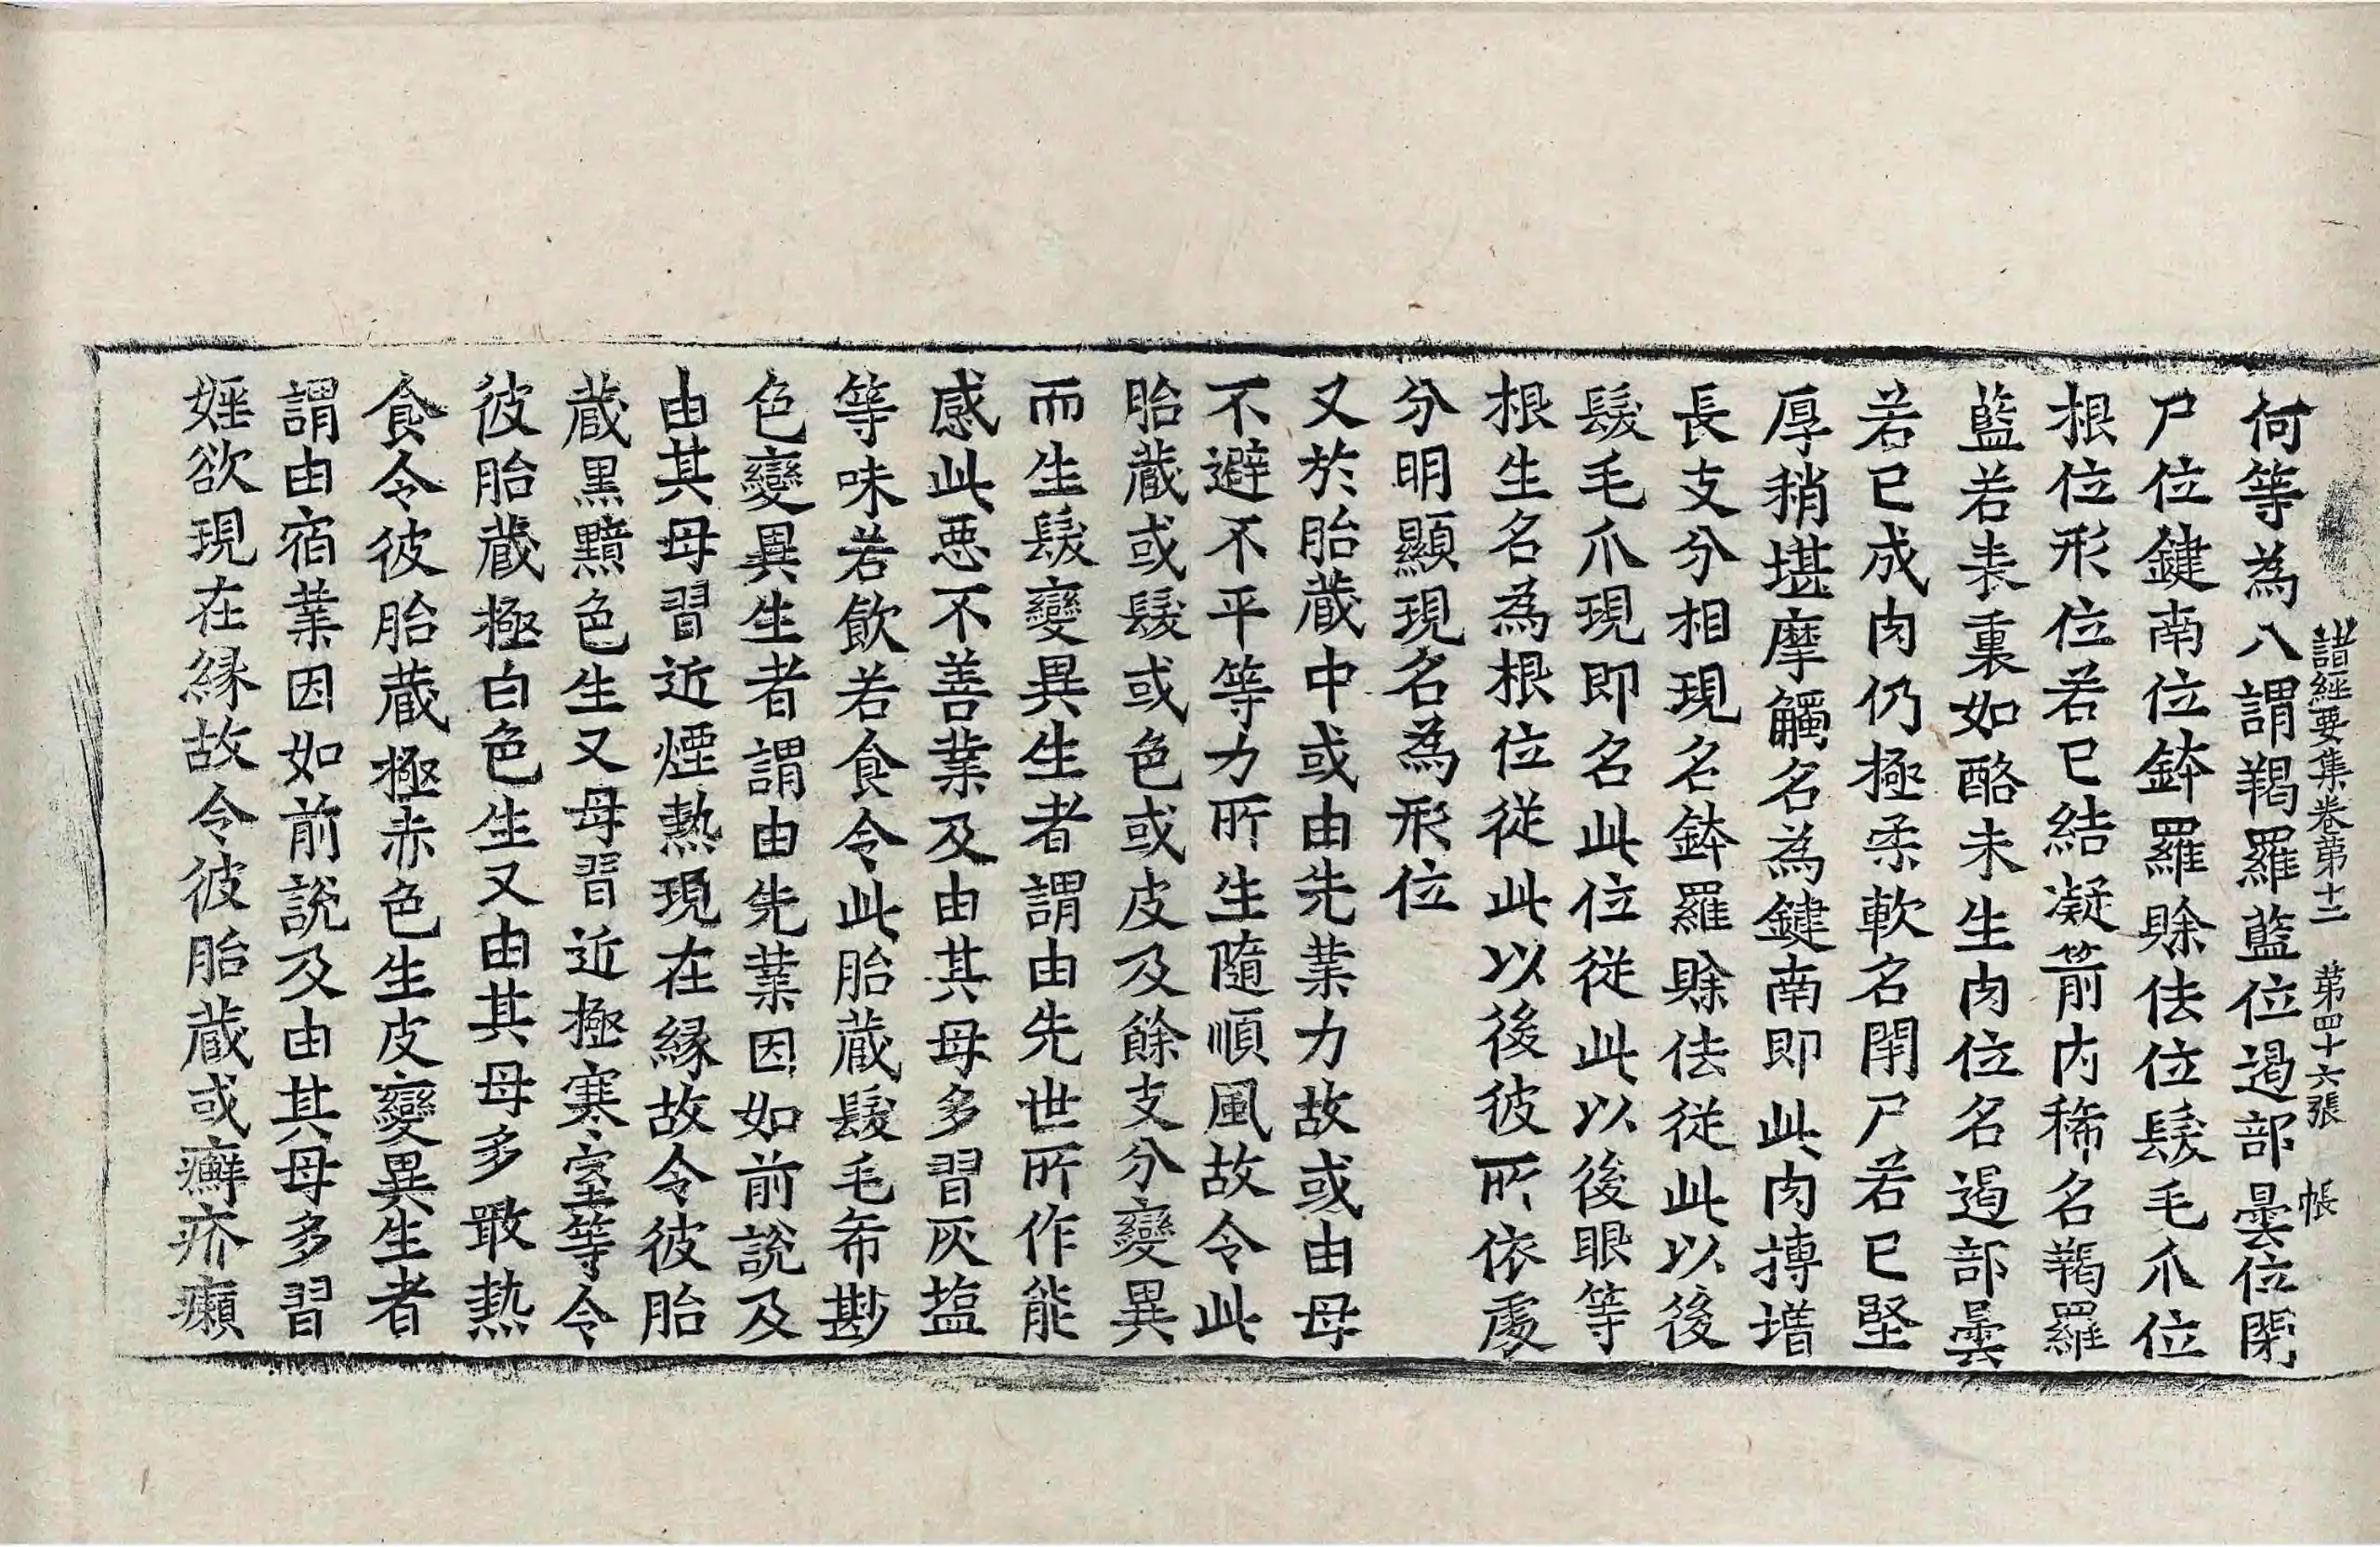 諸經要集卷第十二 第四十六張 帳
何等為八謂羯羅藍位遏部曇位閉
尸位鍵南位鉢羅賒佉位髮毛爪位
根位形位若已結凝箭內稀名羯羅
藍若表裏如酪未生肉位名遏部曇
若已成肉仍極柔軟名閉尸若已堅
厚稍堪摩觸名為鍵南即此肉摶增
長支分相現名鉢羅賒佉從此以後
髮毛爪現即名此位從此以後眼等
根生名為根位從此以後彼所依處
分明顯現名為形位
又於胎藏中或由先業力故或由母
不避不平等力所生隨順風故令此
胎藏或髮或色或皮及餘支分變異
而生髮變異生者謂由先世所作能
感此惡不善業及由其母多習灰塩
等味若飲若食令此胎藏髮毛希尠
色變異生者謂由先業因如前說及
由其母習近煙熱現在緣故令彼胎
藏黑黯色生又母習近極寒室等令
彼胎藏極白色生又由其母多噉熱
食令彼胎藏極赤色生皮變異生者
謂由宿業因如前說及由其母多習
婬欲現在緣故令彼胎藏或癬疥癩